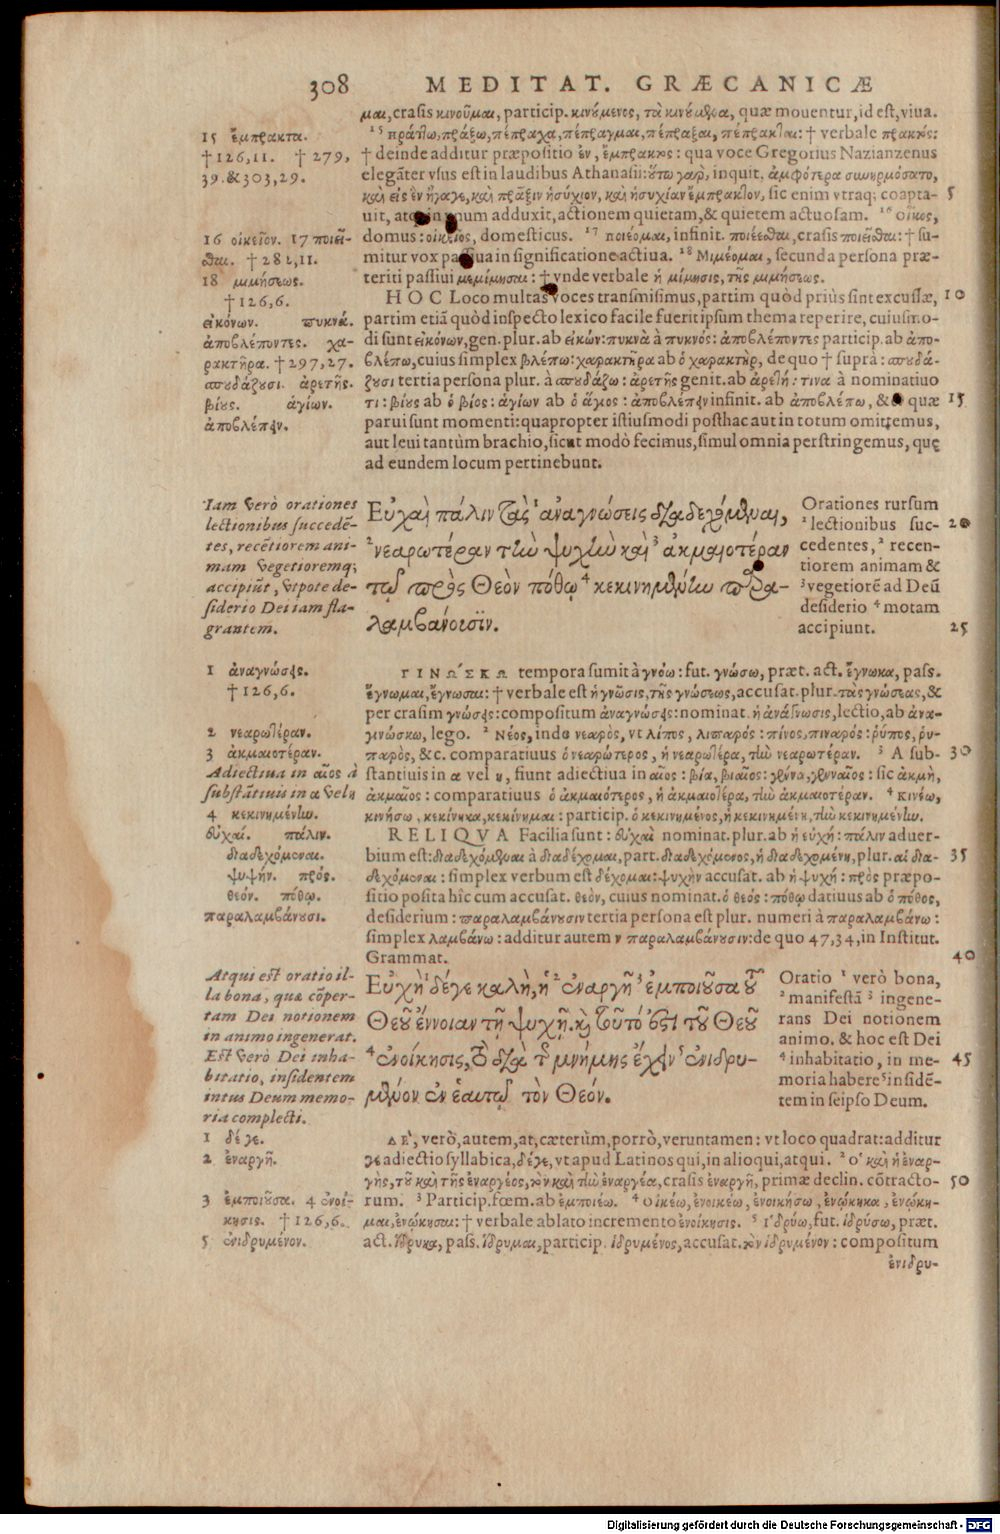 308 MEDITAT. GRÆCANICÆ
μαι, crasis κινοῦμαι, particip. κινούμενος, τὰ κινούμενα, quæ mouentur, id est, viua.
15 Πράττω, πράξω, πέπραχα, πέπραγμαι, πέπραξαι, πέπρακται: † verbale πρακτὸς:
† deinde additur præpositio ἐν, ἔμπρακτος: qua voce Gregorius Nazianzenus
elegāter vsus est in laudibus Athanasii: οὕτω γὰρ, inquit, ἀμφότερα συνηρμόσατο,
καὶ εἰς ἓν ἤγαγε, καὶ πρᾶξιν ἡσύχιον, καὶ ἡσυχίαν ἔμπρακτον, sic enim vtraq; coapta- 5
uit, atq; in vnum adduxit, actionem quietam, & quietem actuosam. 16 οἶκος,
domus: οἰκεῖος, domesticus. 17 ποιέομαι, infinit. ποιέεσθαι, crasis ποιεῖσθαι: † su-
mitur vox passiua in significatione actiua. 18 Μιμέομαι, secunda persona præ-
teriti passiui μεμίμησαι: † vnde verbale ἡ μίμησις, τῆς μιμήσεως.
HOC Loco multas voces transmisimus, partim quòd priùs sint excussæ, 10
partim etiā quòd inspecto lexico facile fuerit ipsum thema reperire, cuiusmo-
di sunt εἰκόνων, gen. plur. ab εἰκών: πυκνὰ à πυκνός: ἀποβλέποντες particip. ab ἀπο-
βλέπω, cuius simplex βλέπω: χαρακτῆρα ab ὁ χαρακτὴρ, de quo † suprà: σπουδά-
ζουσι tertia persona plur. à σπουδάζω: ἀρετῆς genit. ab ἀρετή: τινα à nominatiuo
τι: βίους ab ὁ βίος: ἁγίων ab ὁ ἅγιος: ἀποβλέπειν infinit. ab ἀποβλέπω, & quæ 15
parui sunt momenti: quapropter istiusmodi posthac aut in totum omittemus,
aut leui tantùm brachio, sicut modò fecimus, simul omnia perstringemus, quę
ad eundem locum pertinebunt.
15 ἔμπρακτα.
† 126, 11. † 279,
39. & 303, 29.
16 οἰκεῖον. 17 ποιεῖ-
σθαι. † 281, 11.
18 μιμήσεως.
† 126, 6.
εἰκόνων. πυκνά.
ἀποβλέποντες. χα-
ρακτῆρα. † 297, 27.
σπουδάζουσι. ἀρετῆς.
βίους. ἁγίων.
ἀποβλέπειν.
Iam verò orationes
lectionibus succedē-
tes, recētiorem ani-
mam vegetioremq;
accipiūt, vtpote de-
siderio Dei iam fla-
grantem.
Εὐχαὶ πάλιν τὰς 1 ἀναγνώσεις διαδεχόμεναι,
2 νεαρωτέραν τὴν ψυχὴν καὶ 3 ἀκμαιοτέραν
τῷ πρὸς Θεὸν πόθῳ 4 κεκινημένην παρα-
λαμβάνουσιν.
Orationes rursum
1 lectionibus suc- 20
cedentes, 2 recen-
tiorem animam &
3 vegetiorē ad Deū
desiderio 4 motam
accipiunt. 25
1 ἀναγνώσεις.
† 126, 6.
2 νεαρωτέραν.
3 ἀκμαιοτέραν.
Adiectiua in αῖος à
substātiuis in α vel η
4 κεκινημένην.
εὐχαί. πάλιν.
διαδεχόμεναι.
ψυχήν. πρός.
θεόν. πόθῳ.
παραλαμβάνουσι.
ΓΙΝΩ'ΣΚΩ tempora sumit à γνόω: fut. γνώσω, præt. act. ἔγνωκα, pass.
ἔγνωμαι, ἔγνωσαι: † verbale est ἡ γνῶσις, τῆς γνώσεως, accusat. plur. τὰς γνώσεας, &
per crasim γνώσεις: compositum ἀναγνώσεις: nominat. ἡ ἀνάγνωσις, lectio, ab ἀνα-
γινώσκω, lego. 2 Νέος, inde νεαρὸς, vt λίπος, λιπαρός: πίνος, πιναρός: ῥύπος, ῥυ-
παρὸς, &c. comparatiuus ὁ νεαρώτερος, ἡ νεαρωτέρα, τὴν νεαρωτέραν. 3 A sub- 30
stantiuis in α vel η, fiunt adiectiua in αῖος: βία, βιαῖος: γέννα, γενναῖος: sic ἀκμὴ,
ἀκμαῖος: comparatiuus ὁ ἀκμαιότερος, ἡ ἀκμαιοτέρα, τὴν ἀκμαιοτέραν. 4 Κινέω,
κινήσω, κεκίνηκα, κεκίνημαι: particip. ὁ κεκινημένος, ἡ κεκινημένη, τὴν κεκινημένην.
RELIQVA Facilia sunt: εὐχαὶ nominat. plur. ab ἡ εὐχή: πάλιν aduer-
bium est: διαδεχόμεναι à διαδέχομαι, part. διαδεχόμενος, ἡ διαδεχομένη, plur. αἱ δια- 35
δεχόμεναι: simplex verbum est δέχομαι: ψυχὴν accusat. ab ἡ ψυχή: πρὸς præpo-
sitio posita hîc cum accusat. θεὸν, cuius nominat. ὁ θεός: πόθῳ datiuus ab ὁ πόθος,
desiderium: παραλαμβάνουσιν tertia persona est plur. numeri à παραλαμβάνω:
simplex λαμβάνω: additur autem ν παραλαμβάνουσιν: de quo 47, 34, in Institut.
Grammat. 40
Atqui est oratio il-
la bona, quæ cōper-
tam Dei notionem
in animo ingenerat.
Est verò Dei inha-
bitatio, insidentem
intus Deum memo-
ria complecti.
Εὐχὴ 1 δέγε καλὴ, ἡ 2 ἐναργῆ 3 ἐμποιοῦσα τοῦ
Θεοῦ ἔννοιαν τῇ ψυχῇ. καὶ τοῦτό ἐστι τοῦ Θεοῦ
4 ἐνοίκησις, τὸ διὰ τῆς μνήμης ἔχειν 5 ἐνιδρυ-
μένον ἐν ἑαυτῷ τὸν Θεόν.
Oratio 1 verò bona,
2 manifestā 3 ingene-
rans Dei notionem
animo. & hoc est Dei
4 inhabitatio, in me- 45
moria habere 5 insidē-
tem in seipso Deum.
1 δέγε.
2 ἐναργῆ.
3 ἐμποιοῦσα. 4 ἐνοί-
κησις. † 126, 6.
5 ἐνιδρυμένον.
ΔΕ', verò, autem, at, cæterùm, porrò, veruntamen: vt loco quadrat: additur
γε adiectio syllabica, δέγε, vt apud Latinos qui, in alioqui, atqui. 2 ὁ καὶ ἡ ἐναρ-
γὴς, τοῦ καὶ τῆς ἐναργέος, τὸν καὶ τὴν ἐναργέα, crasis ἐναργῆ, primæ declin. cōtracto- 50
rum. 3 Particip. fœm. ab ἐμποιέω. 4 Οἰκέω, ἐνοικέω, ἐνοικήσω, ἐνῴκηκα, ἐνῴκη-
μαι, ἐνῴκησαι: † verbale ablato incremento ἐνοίκησις. 5 Ἱδρύω, fut. ἱδρύσω, præt.
act. ἵδρυκα, pass. ἵδρυμαι, particip. ἱδρυμένος, accusat. τὸν ἱδρυμένον: compositum
ἐνιδρυ-
Digitalisierung gefördert durch die Deutsche Forschungsgemeinschaft - DFG